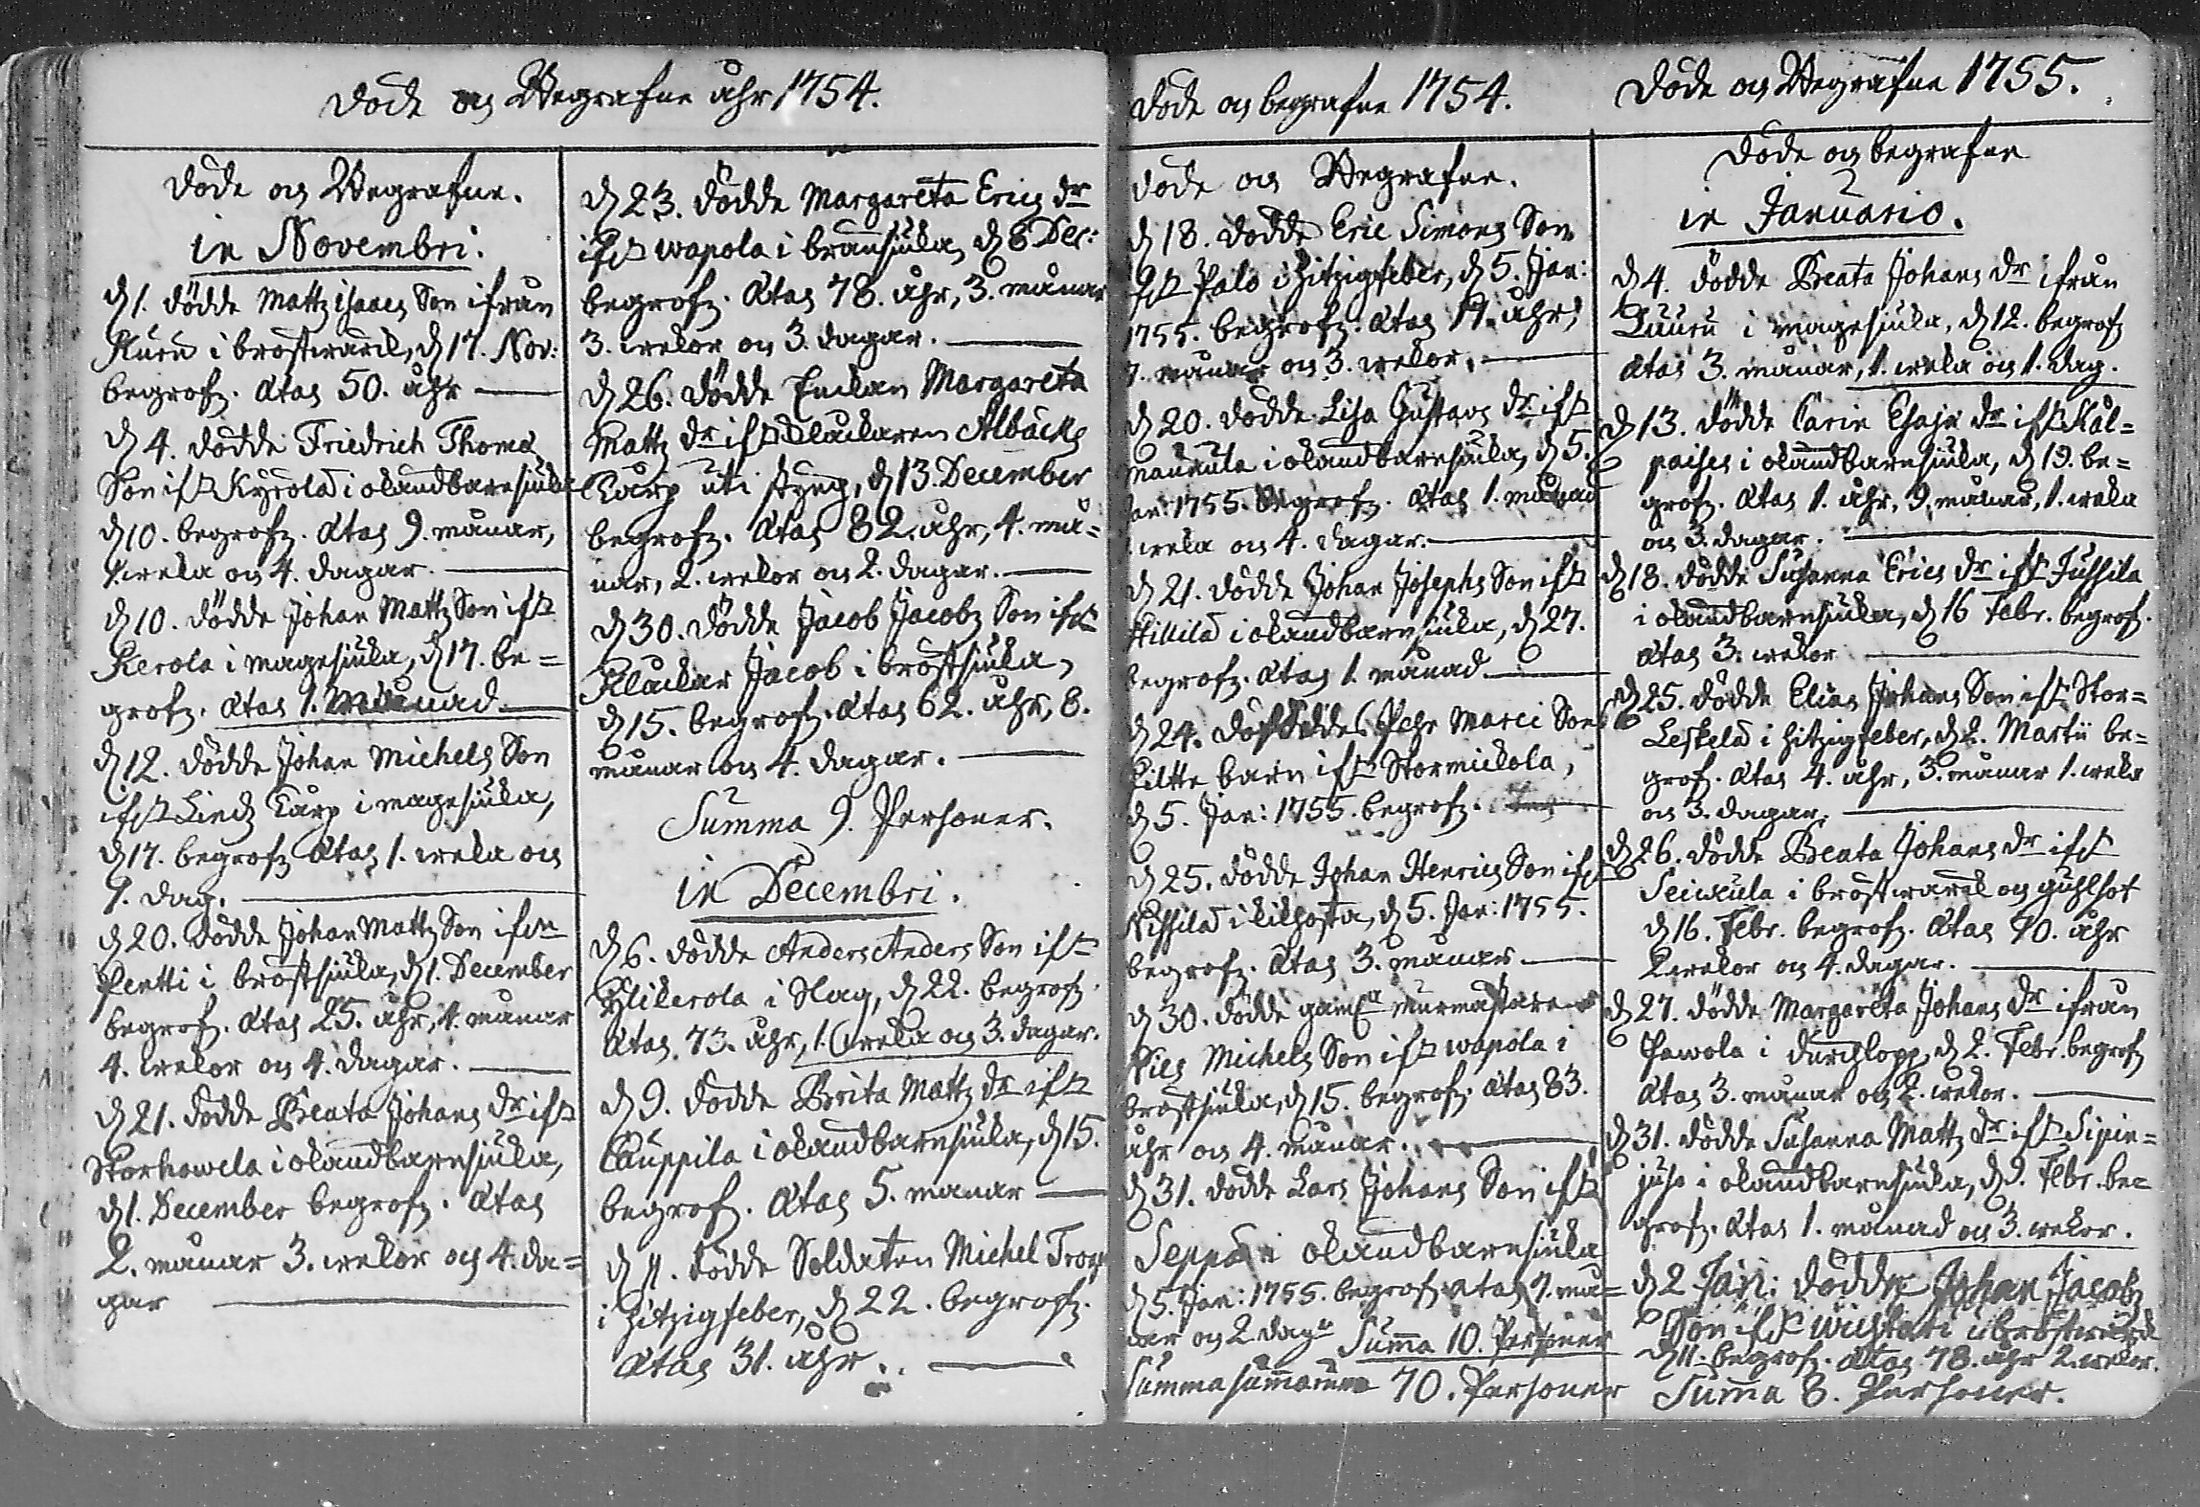 Döde och Begrafne åhr 1754.
Döde och Begrafne.
in Novembri.
d 1. dödde Mattz Isaacs Son ifrån
Kuru i bröstwärck, d 17. Nov:
begrofz. Ætas 50. åhr
d 4. dödde Friedrich Thomæ
Son ifr Kyrola i okandbarnsiuka
d 10. begrofz. Ætas 9. månar,
1 weka och 4. dagar.
d 10. dödde Johan Mattz Son ifr
Kerola i magesiuka, d 17. be=
grofz. Ætas 1. månad
d 12. dödde Johan Michels Son
ifr Lindz Torp i magesiuka,
d 17. begrofz Ætas 1. weka och
1. dag.
d 20. dödde Johan Mattz Son ifrn
Pentti i bröstsiuka, d 1. December
begrof. Ætas 25. åhr, 4. månar
4. wekor och 4. dagar.
d 21. dödde Beata Johans dr ifr
Storhowela i okandbarnsiuka,
d 1. December begrofz. Ætas
2. månar 3. wekor och 4. da=
gar
d 23. dödde Margareta Erics dr
ifr wapola i brånsiuka, d 8 Dec:
begrofz. Ætas 78. åhr, 3. månar
3. wekor och 3. dagar.
d 26. dödde Enckan Margareta
Mattz dr ifr Klackaren Albäcks
Torp uti styng, d 13. December
begrofz. Ætas 82. åhr, 4. må=
nar, 2. wekor och 2. dagar.
d 30. dödde Jacob Jacobz Son ifr
Klackar Jacob i bröstsiuka,
d 15. begrofz. Ætas 62. åhr, 8.
månar och 4. dagar.
Summa 9. Personer.
in Decembri.
d 6. dödde Anders Anders Son ifr
Ylikerola i Slag, d 22. begrofz.
Ætas. 73. åhr, 1. weka och 3. dagar.
d 9. dödde Brita Mattz dr ifr
Cauppila i okandbarnsiuka, d 15.
begrof. Ætas 5. månar
d 11. dödde Soldaten Michel Trogen
i hitzigfeber, d 22. begrofz.
Ætas 31. åhr.
Döde och begrafne 1754.
Döde och Begrafne.
d 18. dödde Eric Simons Son
ifr Palo i hitzigfeber, d 5. Jan:
1755. begrofz. Ætas 19. åhr,
7. månar och 3. wekor.
d 20. dödde Lisa Gustavs dr ifr
Maunula i okandbarnsiuka, d 5.
Jan: 1755. Begrofz. Ætas 1. månad
weka och 4. dagar.
d 21. dödde Johan Josephs Son ifr
Hillilä i okandbarnsiuka, d 27.
begrofz. Ætas 1. månad.
d 24. dödde Pehr Marci Sons
Litte barn ifr Stormickola,
d 5. Jan: 1755. begrofz.
d 25. dödde Johan Henrics Son ifr
Nissilä i kikhosta, d 5. Jan: 1755.
begrofz. Ætas 3. månar
d 30. dödde gamla murmästaren
Nils Michels Son ifr wapola i
bröstsiuka, d 15. begrofz. Ætas 83.
åhr och 4. månar.
d 31. dödde Lars Johans Son ifr
Seppä i okandbarnsiuka
d 5. Jan: 1755. begrof Ætas 7. må=
nar och 2 dagr Summa 10. Personer
Summa summarum 70. Personer
Döde och Begrafne 1755.
Döde och begrafne
in Januario.
d 4. dödde Beata Johans dr ifrån
Luuru i magesiuka, d 12. begrofz
Ætas 3. månar, 1. weka och 1. dag.
d 13. dödde Carin Esajæ dr ifr Käl=
paises i okandbarnsiuka, d 19. be=
grofz. Ætas 1. åhr, 9. månar, 1. weka
och 3. dagar.
d 18. dödde Susanna Erics dr ifr Jussila
i okandbarnsiuka, d 16 Febr. begrof.
Ætas 3. wekor
d 25. dödde Elias Johans Son ifr Stor=
Leskelä i hitzigfeber, d 2. Martii be=
grof. Ætas 4. åhr, 3. månar 1. weka
och 3. dagar.
d 26. dödde Beata Johans dr ifr
i bröstwärck och guhlsot
d 16. Febr. begrofz. Ætas 70. åhr
2 wekor och 4. dagar.
d 27. dödde Margareta Johans dr ifrån
Pawola i durchlopp, d 2. Febr. begrofz
Ætas 3. månar och 2. wekor.
d 31. dödde Susanna Mattz dr ifr Sipin=
juso i okandbarnsiuka, d 9. Febr. be=
grofz. Ætas 1. månad och 3. wekor.
d 2 Jan: dödde Johan Jacobz
Son ifr wuhtari i bröstwärck
d 11. begrof. Ætas. 78. åhr 2. wekor.
Summa 8. Personer.